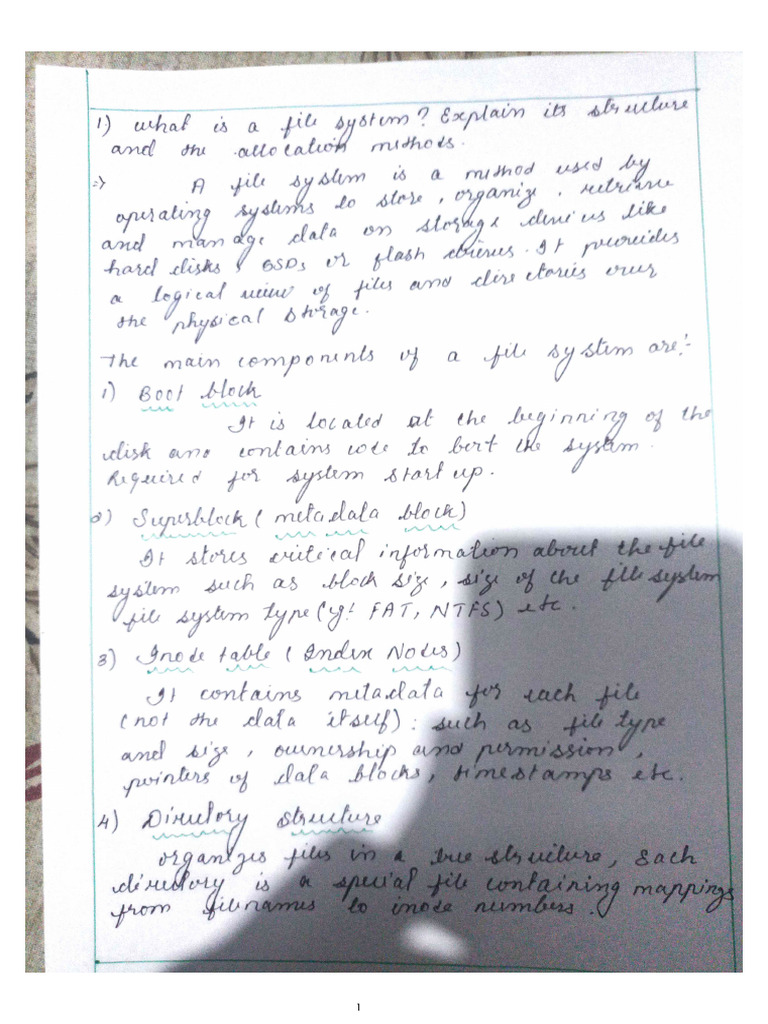 1) what is a file system? Explain its structure
and the allocation methods.
=> A file system is a method used by
operating systems to store, organize, retrieve
and manage data on storage devices like
hard disks, SSDs or flash drives. It provides
a logical view of files and directories over
the physical storage.
The main components of a file system are:-
1) Boot block
It is located at the beginning of the
disk and contains code to boot the system.
Required for system start up.
2) Superblock (metadata block)
It stores critical information about the file
system such as block size, size of the file system
file system type (eg: FAT, NTFS) etc.
3) Inode table (Index Nodes)
It contains metadata for each file
(not the data itself): such as file type
and size, ownership and permission,
pointers of data blocks, timestamps etc.
4) Directory structure
organizes files in a tree structure, Each
directory is a special file containing mappings
from filenames to inode numbers.
1